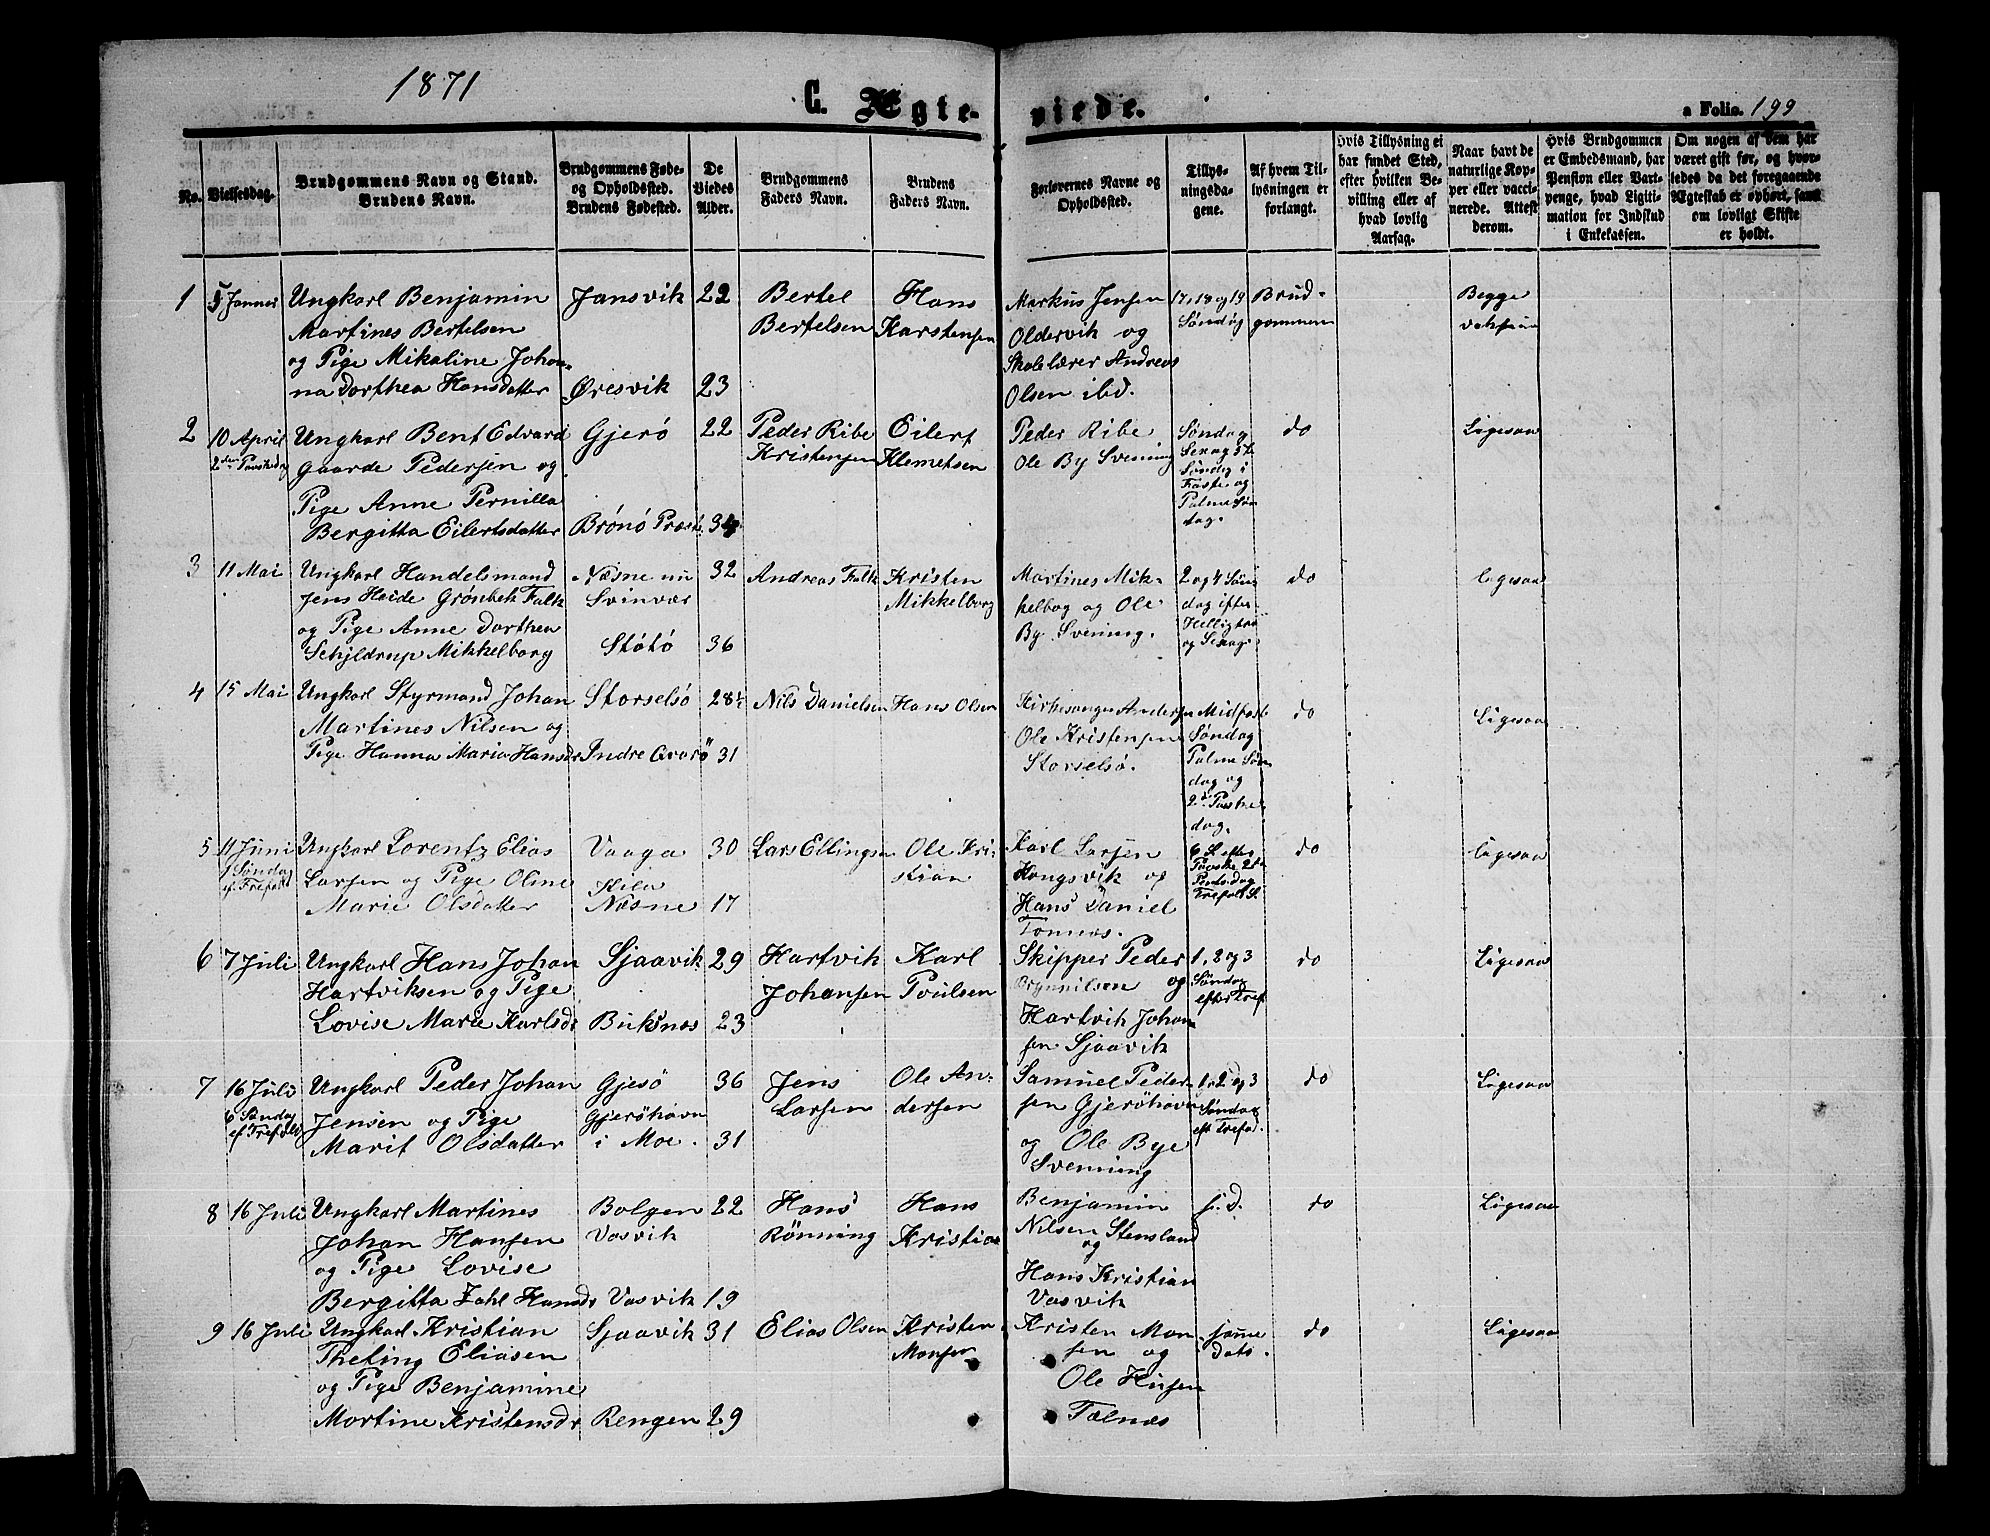 1871
C. Ægte-
viede.
a Folio. 199
No.
Vielsesdag.
Brudgommens Navn og Stand.
Brudens Navn.
Brudgommens Føde-
og Opholdssted.
Brudens Fødested.
De
Viedes
Alder.
Brudgommens
Faders Navn.
Brudens
Faders Navn.
Forlovernes Navne og
Opholdssted.
Tillys-
ningsda-
gene.
Af hvem Til-
lysningen er
forlangt.
Hvis Tillysning ei
har fundet Sted,
efter hvilken Be-
villing eller af
hvad lovlig
Aarsag.
Naar havt de
naturlige Kop-
per eller vacci-
nerede. Attest
derom.
Hvis Brudgommen
er Embedsmand, har
Pension eller Vart-
penge, hvad Ligiti-
mation for Indskud
i Enkekassen.
Om nogen af dem har
været gift før, og hvor-
ledes da det foregaaende
Ægteskab er ophørt, samt
om lovligt Skifte
er holdt.
1
5 Januar
Ungkarl Benjamin
Martines Bertelsen
og Pige Mikaline Johan-
na Dorthea Hansdatter
Jansvik
Øresvik
22
23
Bertel
Bertelsen
Hans
Karstensen
Markus Jensen
Oldervik og
Skolelærer Andreas
Olsen ibd.
17, 18 og 19
Søndag
Brud-
gommen
Begge
2
10 April
2den Paaskedag
Ungkarl Bent Edvard
Gaarde Pedersen og
Pige Anne Pernilla
Bergitta Eilertsdatter
Gjerø
Brønø Præst.
22
34
Peder Ribe
Kristensen
Eilert
Klemetsen
Peder Ribe
Ole By Svenning
Søndag
Sexag 5te
Søndag i
Faste og
Palme Søn
dag.
do
Ligesaa
3
11 Mai
Ungkarl Handelsmand
Jens Heide Grønbek Falk
og Pige Anne Dorthea
Schjldrup Mikkelborg
Næsne nu
Svinvær
Støtø
32
36
Andreas Falk
Kristen
Mikkelborg
Martines Mik-
kelbog og Ole
By Svenning.
2 og 4 Søn
dag efter
Helligtre
og Sexag.
do
Ligesaa
4
15 Mai
Ungkarl Styrmand Johan
Martines Nilsen og
Pige Hanna Maria Hansdr
Storselsø
Indre Qvarø
28½
31
Nils Danielsen
Hans Olsen
Kirkesanger Andersen
Ole Kristensen
Storselsø.
Midfaste
Søndag
Palme Søn
dag og
2d Paaske
dag.
do
Ligesaa
5
11 Juni
1 Søndag
ef. Trefold
Ungkarl Lorentz Elias
Larsen og Pige Oline
Marie Olsdatter
Vaaga
Kila
Næsne
30
17
Lars Ellingsen
Ole Kri-
stian
Karl Larsen
Kongsvik og
Hans Daniel
Tonnes.
6 S. efter
Paaske 2den
Pintsdag
Trefold S.
do
Ligesaa
6
7 Juli
Ungkarl Hans Johan
Hartviksen og Pige
Lovise Marie Karlsdr
Sjaavik
Buksnæs
29
23
Hartvik
Johansen
Karl
Poulsen
Skipper Peder
Brynnilsen og
Hartvik Johan
sen Sjaavik
1, 2 og 3
Søndag
efter Tref
do
Ligesaa
7
16 Juli
6 Søndag
ef Trefold
Ungkarl Peder Johan
Jensen og Pige
Marit Olsdatter
Gjesø
Gjerøhavn
i Moe.
36
31
Jens
Larsen
Ole An-
dersen
Samuel Peder-
sen Gjerøhavn
og Ole Bye
Svenning
1, 2 og 3
Søndag
eft Trefod.
do
Ligesaa
8
16 Juli
Ungkarl Martines
Johan Hansen
og Pige Lovise
Bergitta Zahl Hansdr
Bolgen
Vasvik
Vasvik
22
19
Hans
Rønning
Hans
Kristian
Benjamin
Nilsen Stensland
og
Hans Kristian
Vasvik
s. d.
do
Ligesaa
9
16 Juli
Ungkarl Kristian
Theting Eliasen
og Pige Benjamine
Martine Kristensdr
Sjaavik
Rengen
31
29
Elias Olsen
Kristen
Monsen
Kristen Mon
sen og
Ole Husen
Tælnæs
samme
Dato.
do
Ligesaa